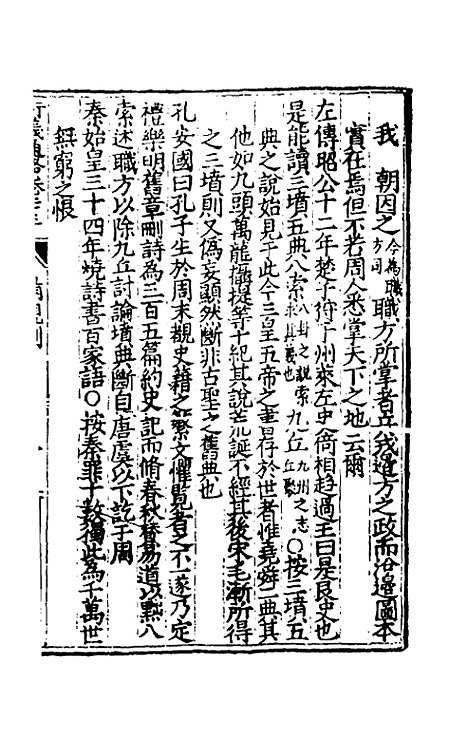 我　朝因之今為職方司職方所掌者乃鎮道方之政而沿邊圖本
實在焉但不若周人悉掌天下之地云爾
左傳昭公十二年楚子狩于州來左史倚相趨過王曰是良史也
是能讀三墳五典八索八卦之說索求其義也九丘九州之志丘聚○按三墳五
典之說始見于此今三皇五帝之書存於世者惟堯舜二典其
他如九頭萬龍攝提等十紀其說荒誕不經其後宋毛漸所得
之三墳則又偽妄顯然斷非古聖之舊典也
孔安國曰孔子生於周末覩史籍之繁文懼覽者之不一遂乃定
禮樂明舊章刪詩為三百五篇約史記而脩春秋贊易道以黜八
索述職方以除九丘討論墳典斷自唐虞以下訖于周
秦始皇三十四年燒詩書百家語○按秦罪十數獨此為千萬世
無窮之恨